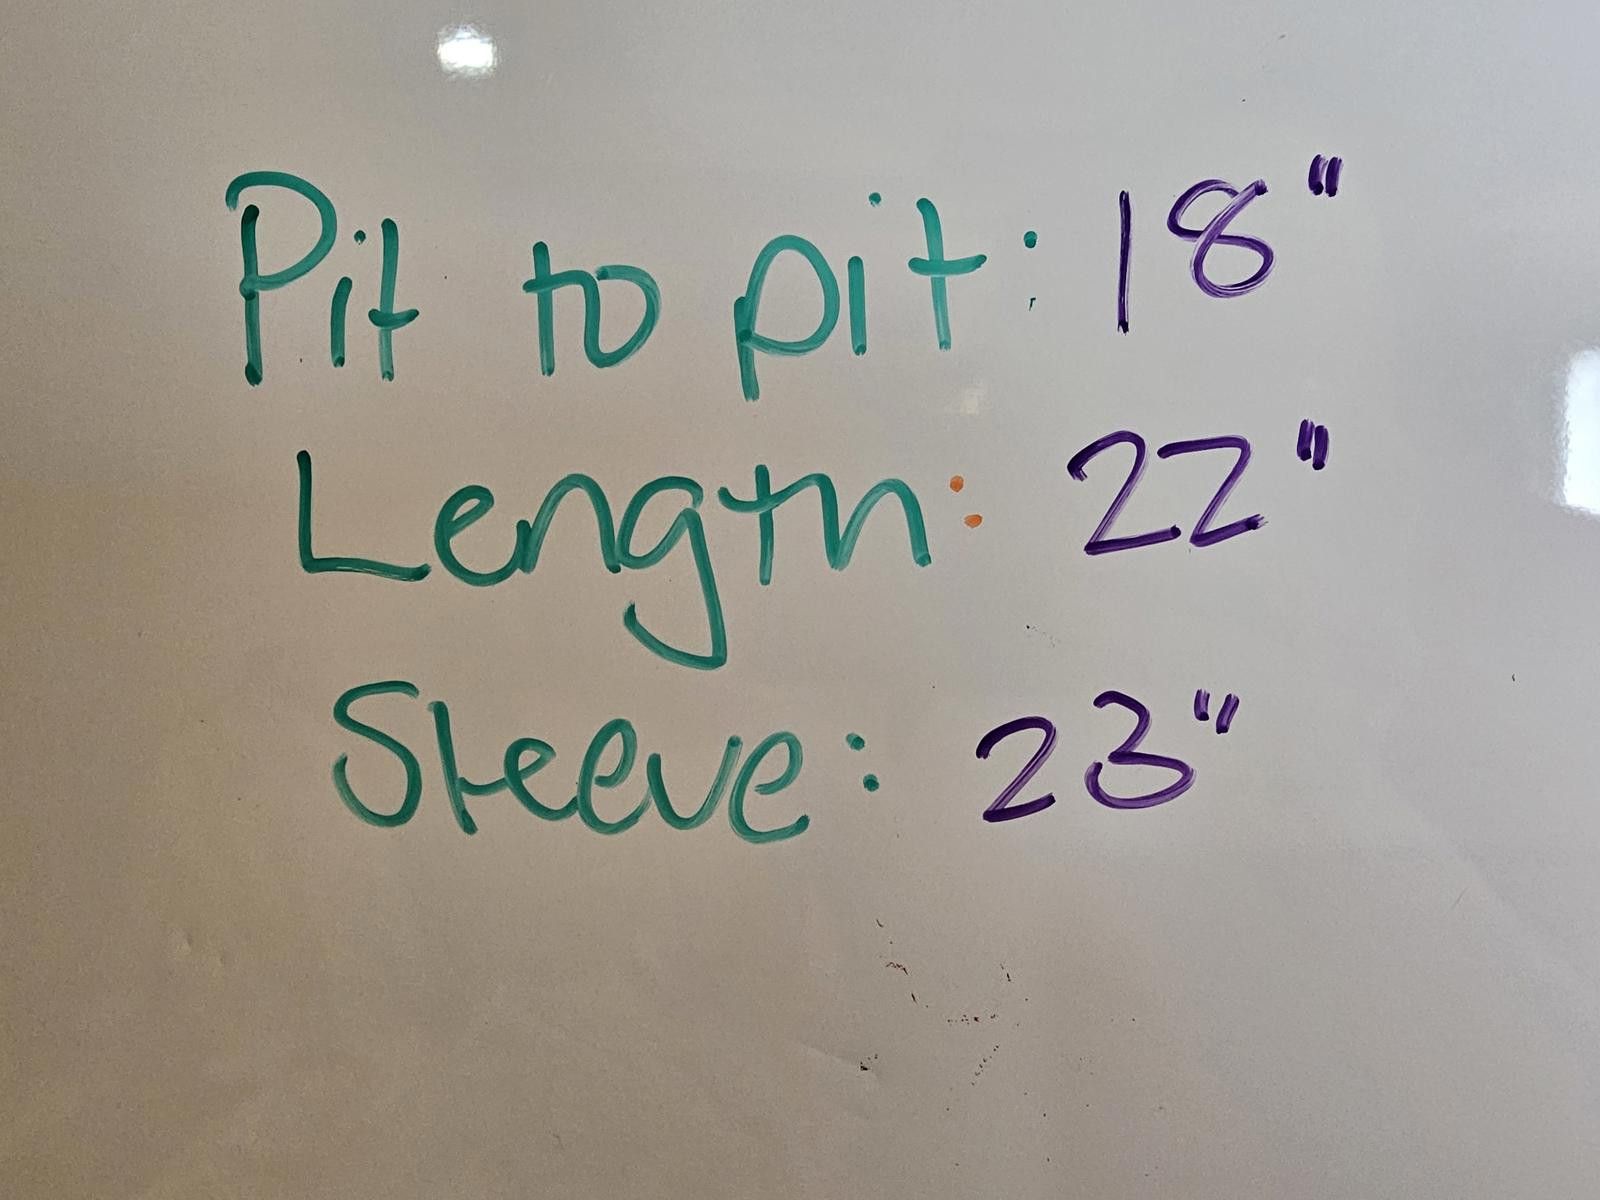 Pit to pit: 18"
Length: 22"
Sleeve: 23"